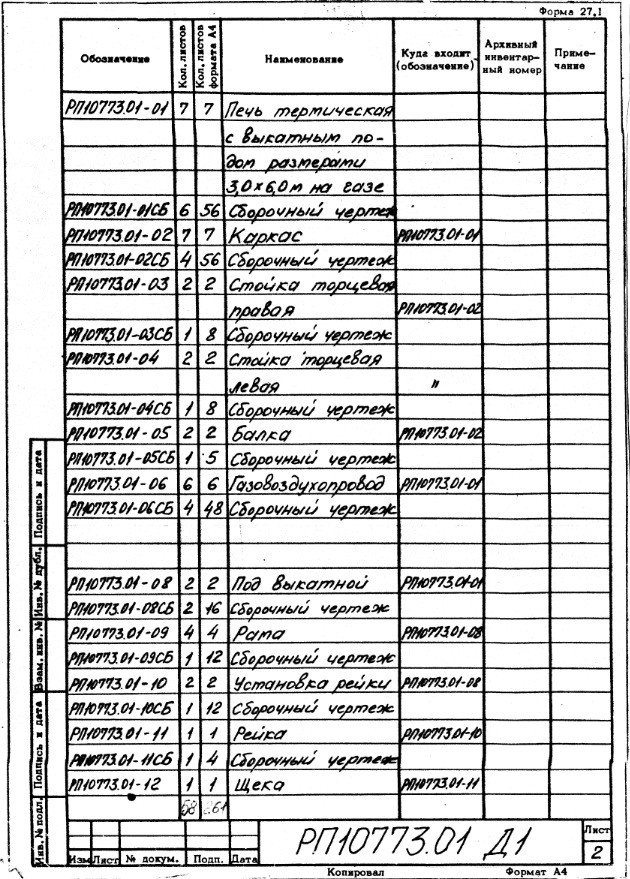 Форма 27.1
Обозначение Кол. листов Кол. листов формата А4 Наименование Куда входит (обозначение) Архивный инвентарный номер Примечание
РП10773.01-01 7 7 Печь термическая
с выкатным по-
дом размерами
3,0×6,0м на газе
РП10773.01-01СБ 6 56 Сборочный чертеж
РП10773.01-02 7 7 Каркас РП10773.01-01
РП10773.01-02СБ 4 56 Сборочный чертеж
РП10773.01-03 2 2 Стойка торцевая
правая РП10773.01-02
РП10773.01-03СБ 1 8 Сборочный чертеж
РП10773.01-04 2 2 Стойка торцевая
левая "
РП10773.01-04СБ 1 8 Сборочный чертеж
РП10773.01-05 2 2 Балка РП10773.01-02
РП10773.01-05СБ 1 5 Сборочный чертеж
РП10773.01-06 6 6 Газовоздухопровод РП10773.01-01
РП10773.01-06СБ 4 48 Сборочный чертеж
РП10773.01-08 2 2 Под выкатной РП10773.01-01
РП10773.01-08СБ 2 16 Сборочный чертеж
РП10773.01-09 4 4 Рама РП10773.01-08
РП10773.01-09СБ 1 12 Сборочный чертеж
РП10773.01-10 2 2 Установка рейки РП10773.01-08
РП10773.01-10СБ 1 12 Сборочный чертеж
РП10773.01-11 1 1 Рейка РП10773.01-10
РП10773.01-11СБ 1 4 Сборочный чертеж
РП10773.01-12 1 1 Щека РП10773.01-11
58 261
Инв. № подл. Подпись и дата Взам. инв. № Инв. № дубл. Подпись и дата
РП10773.01 Д1
Лист
2
Изм Лист № докум. Подп. Дата
Копировал Формат А4